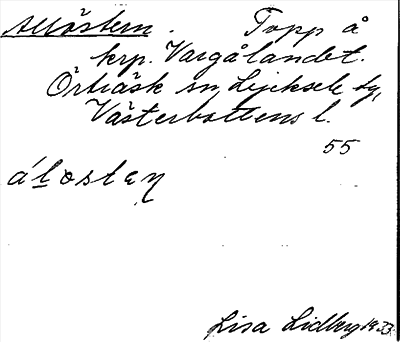 Allöstern. Topp å
krp. Vargålandet.
Örträsk sn, Lycksele tg,
Västerbottens l.
55
Lisa Lidberg 1933